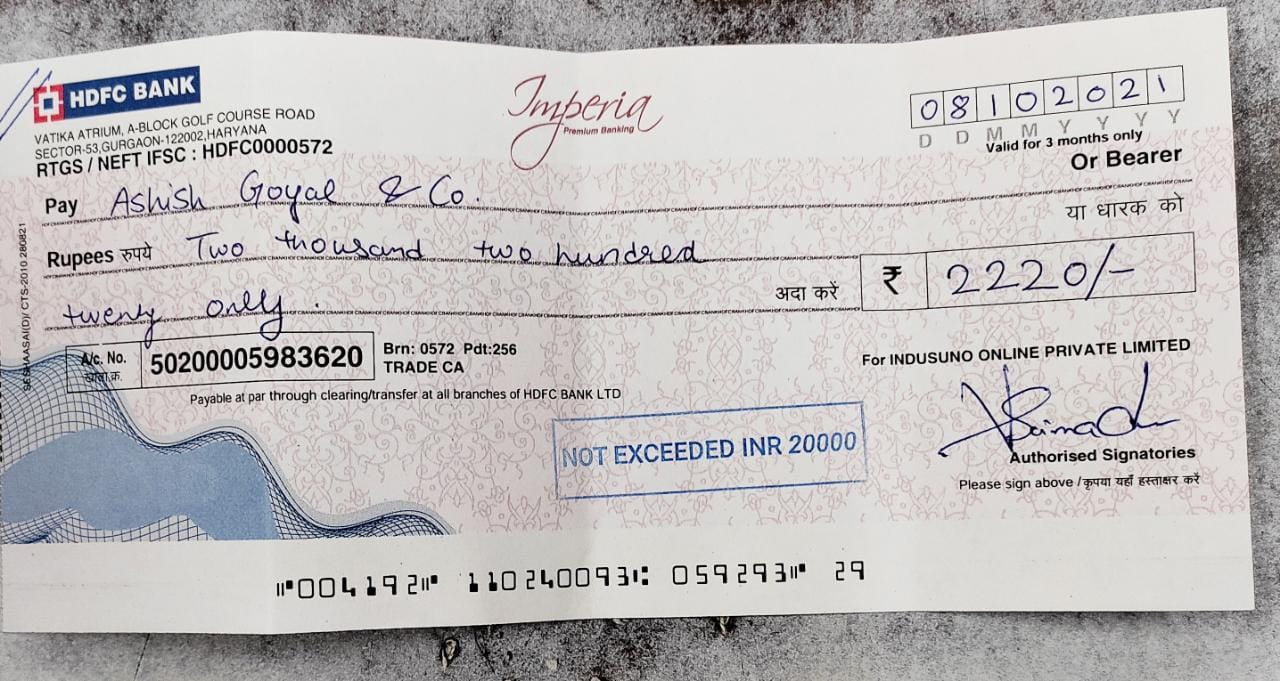 HDFC BANK
VATIKA ATRIUM, A-BLOCK GOLF COURSE ROAD
SECTOR-53,GURGAON-122002,HARYANA
RTGS / NEFT IFSC : HDFC0000572
Imperia
Premium Banking
08102021
D D M M Y Y Y Y
Valid for 3 months only
Or Bearer
Pay Ashish Goyal & Co.
या धारक को
Rupees रुपये Two thousand two hundred
twenty only.
अदा करें ₹ 2220/-
A/c. No.
खाता क्र.
50200005983620
Brn: 0572 Pdt:256
TRADE CA
Payable at par through clearing/transfer at all branches of HDFC BANK LTD
For INDUSUNO ONLINE PRIVATE LIMITED
NOT EXCEEDED INR 20000
Authorised Signatories
Please sign above / कृपया यहाँ हस्ताक्षर करें
CTS-2010 280821
⑈004192⑈ 110240093⑆ 059293⑈ 29